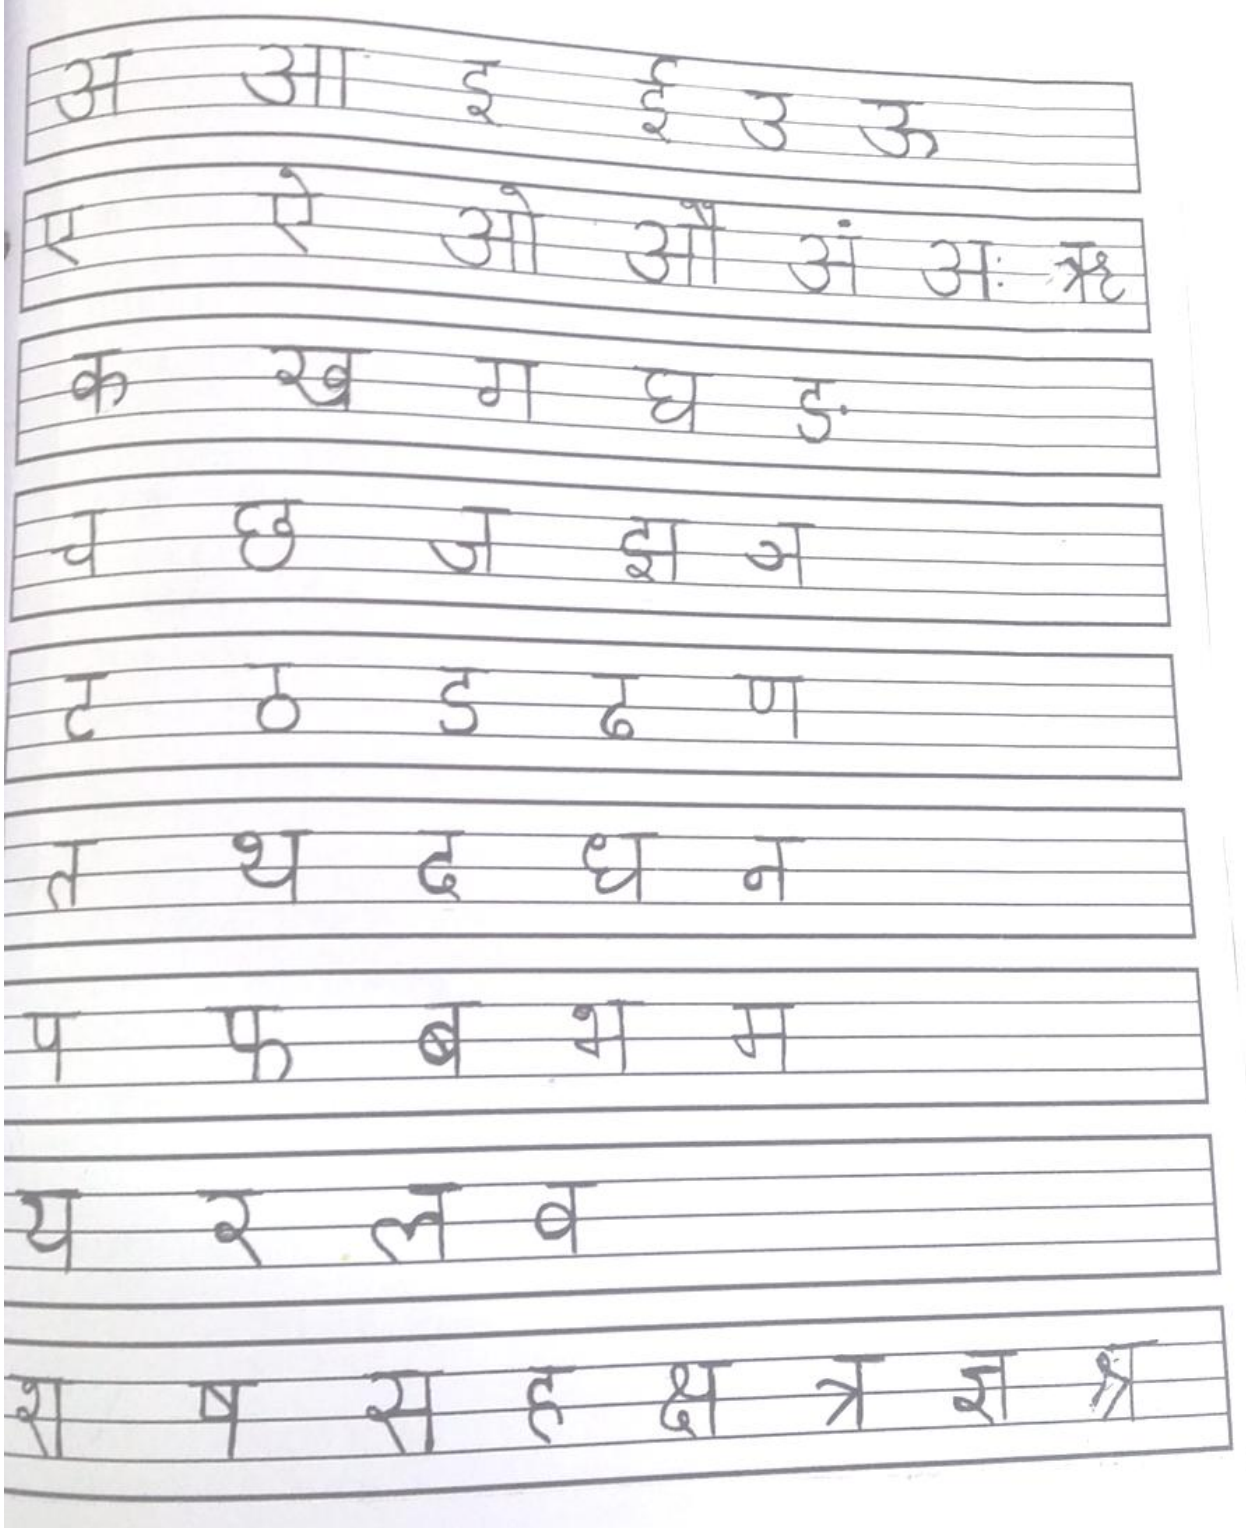 अ आ इ ई उ ऊ
ए ऐ ओ औ अं अः ऋ
क ख ग घ ङ
च छ ज झ ञ
ट ठ ड ढ ण
त थ द ध न
प फ ब भ म
य र ल व
श ष स ह क्ष त्र ज्ञ श्र